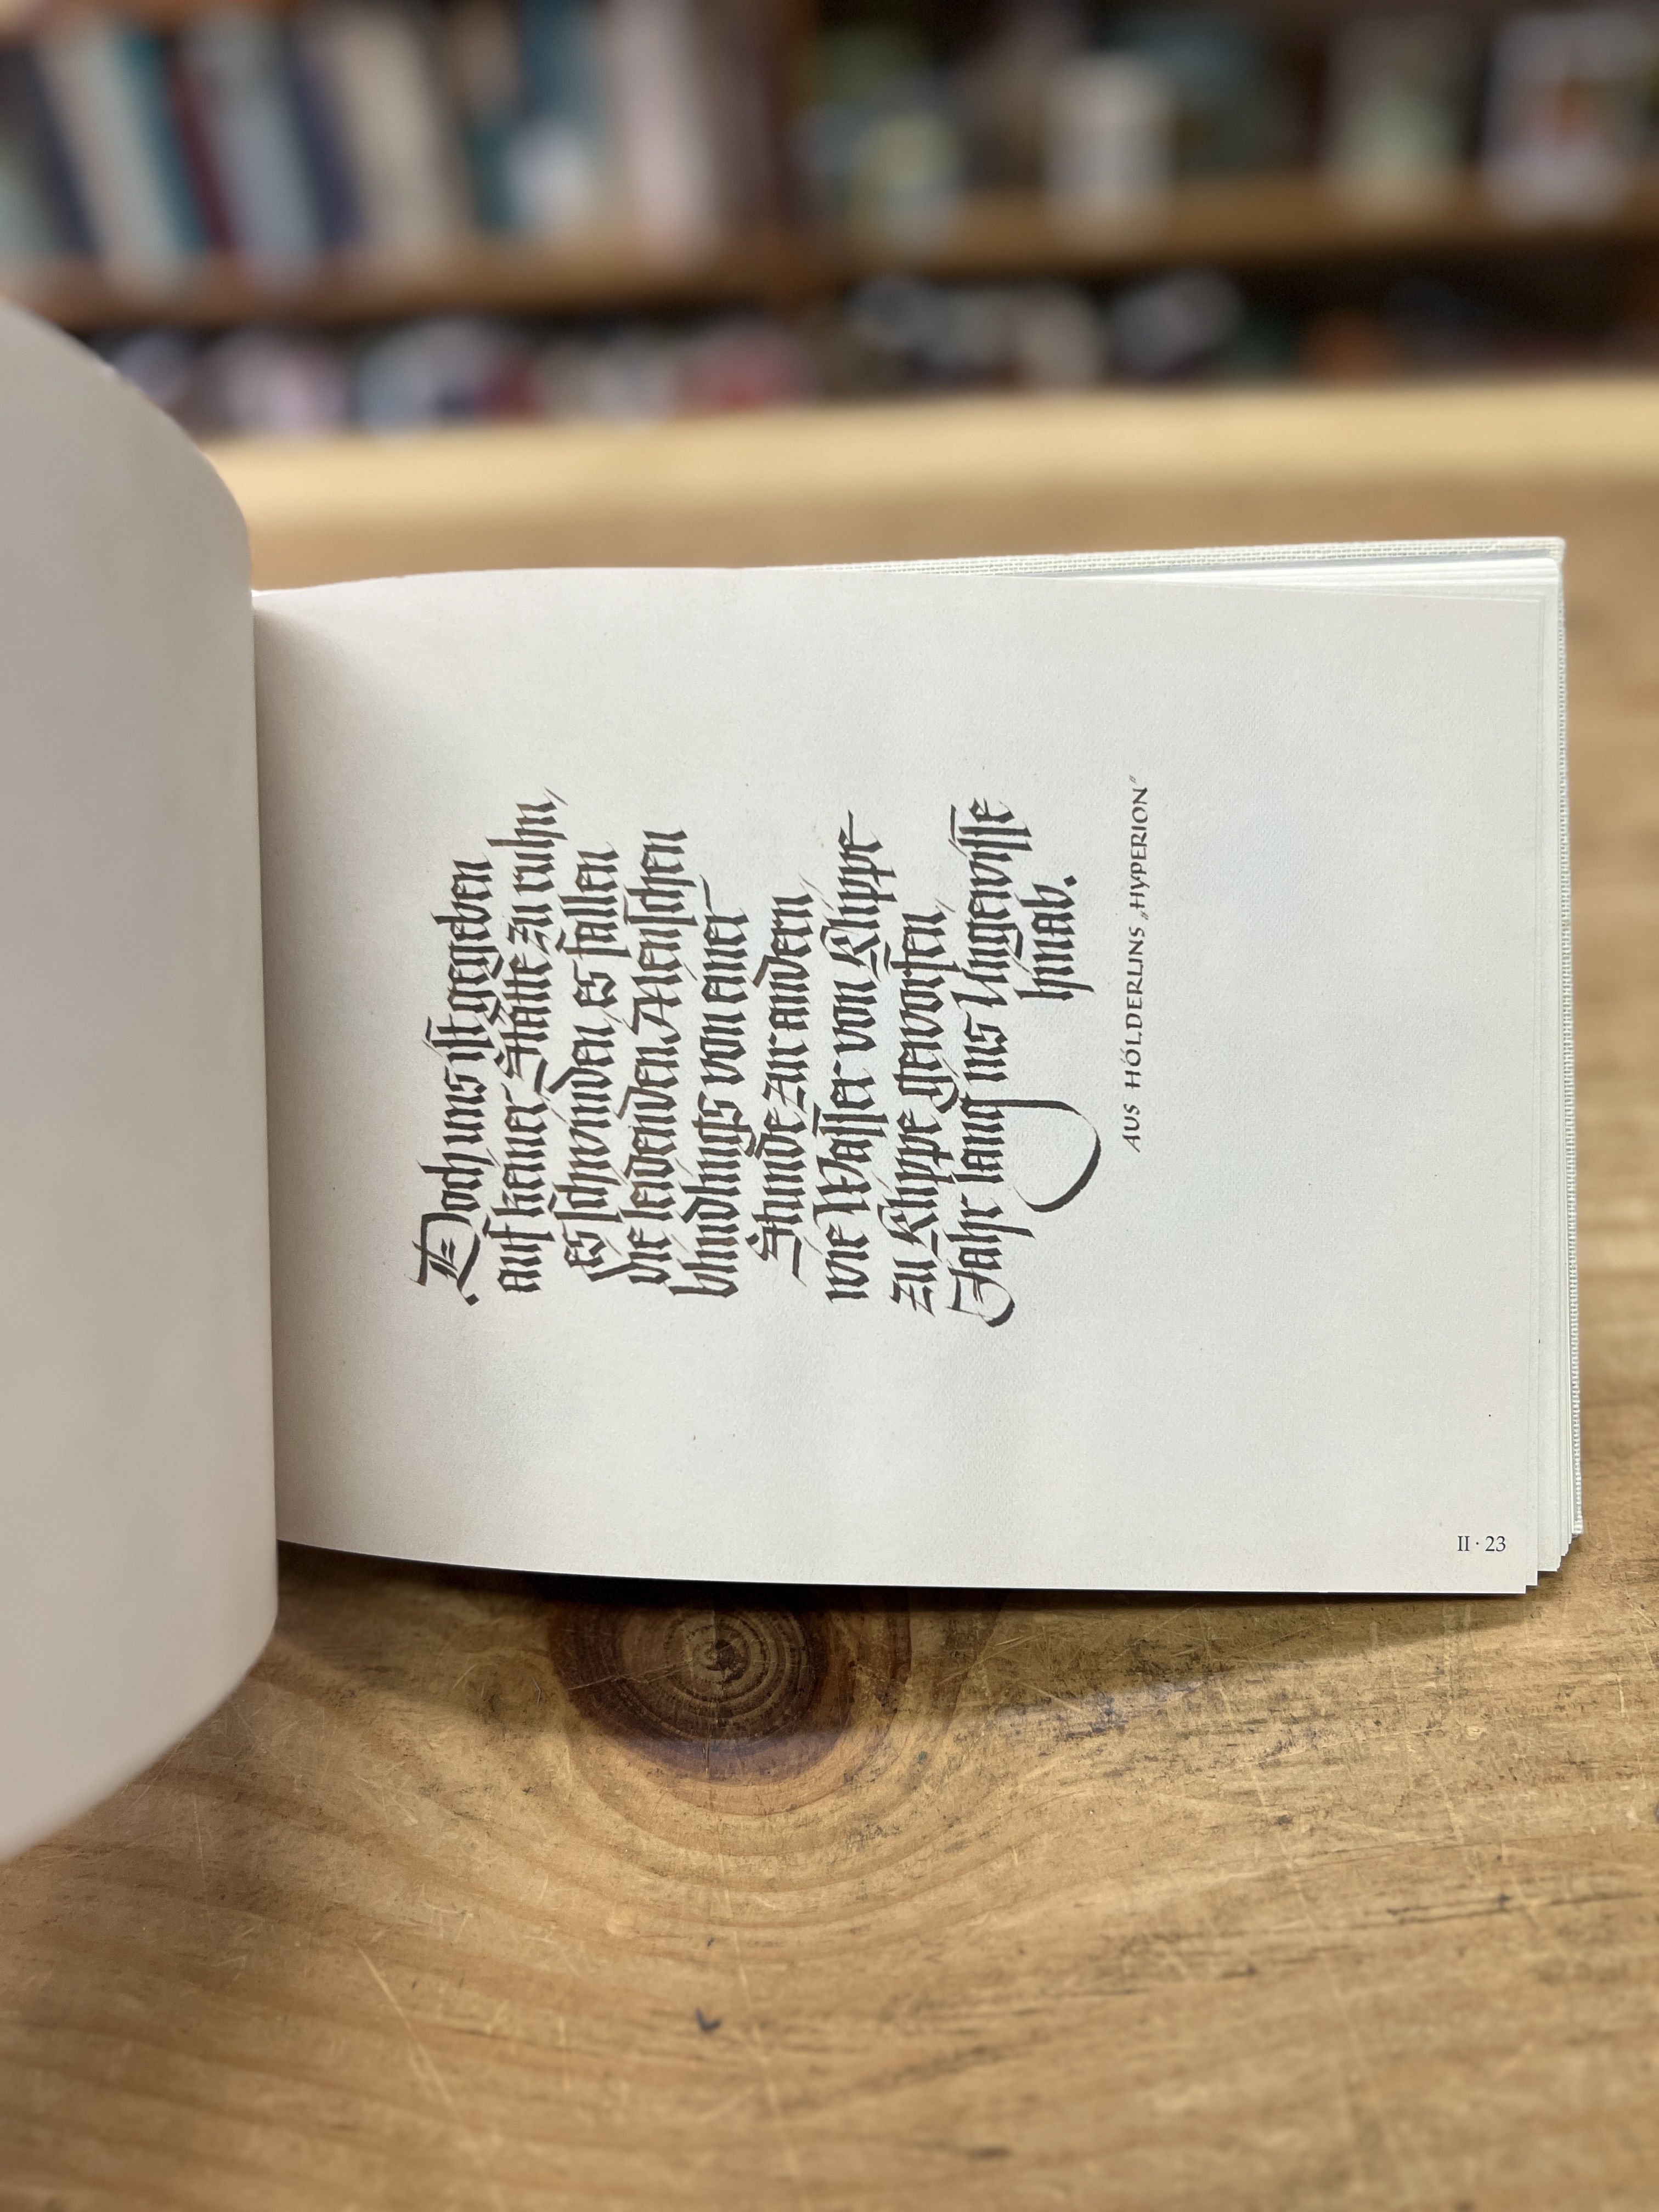 Doch uns ist gegeben
auf keiner Stätte zu ruhn,
es schwinden, es fallen
die leidenden Menschen
blindlings von einer
Stunde zur andern,
wie Wasser von Klippe
zu Klippe geworfen,
Jahr lang ins Ungewisse
hinab.
AUS HÖLDERLINS „HYPERION“
II · 23